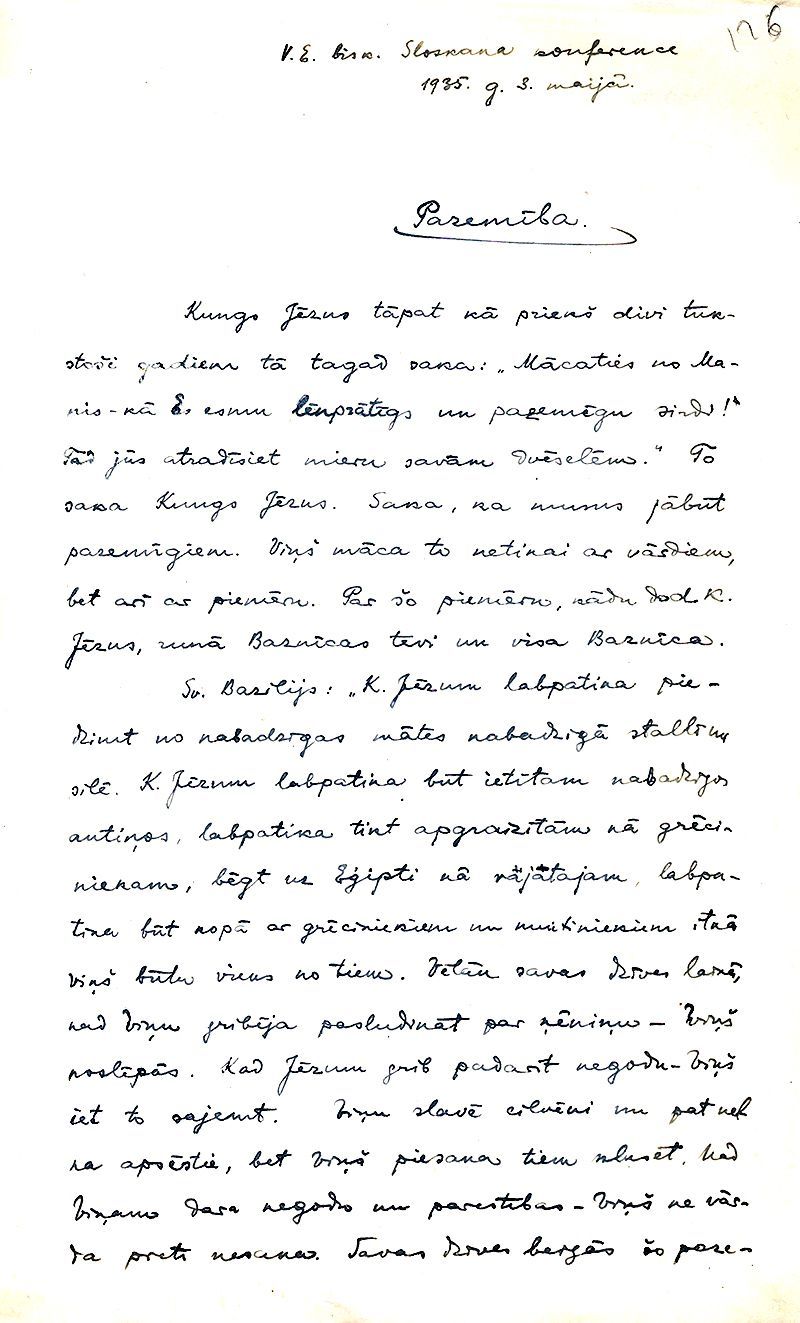 126
V.E. bisk. Sloskana konference
1935. g. 3. maijā.
Pazemība.
Kungs Jēzus tāpat kā priekš divi tūk-
stoši gadiem tā tagad saka: „Mācaties no Ma-
nis - kā Es esmu lēnprātīgs un pazemīgu sirdi!"
Tad jūs atradīsiet mieru savām dvēselēm." To
saka Kungs Jēzus. Saka, ka mums jābūt
pazemīgiem. Viņš māca to netikai ar vārdiem,
bet arī ar piemēru. Par šo piemēru, kādu dod K.
Jēzus, runā Baznīcas tēvi un visa Baznīca.
Sv. Bazilijs: „K. Jēzum labpatika pie-
dzimt no nabadzīgas mātes nabadzīgā stalliņa
silē. K. Jēzum labpatika būt ietītam nabadzīgos
autiņos, labpatika tikt apgraizītam kā grēci-
niekam, bēgt uz Eģipti kā vājātajam, labpa-
tika būt kopā ar grēciniekiem un muitiniekiem itkā
viņš būtu viens no tiem. Vēlāk savas dzīves laikā,
kad Viņu gribēja pasludināt par ķēniņu - Viņš
noslēpās. Kad Jēzum grib padarīt negodu - Viņš
iet to saņemt. Viņu slavē cilvēki un pat vel-
na apsēstie, bet Viņš piesaka tiem klusēt. Kad
Viņam dara negodu un pārestības - Viņš ne vār-
da pretī nesaka. Savas dzīves beigās šo paze-